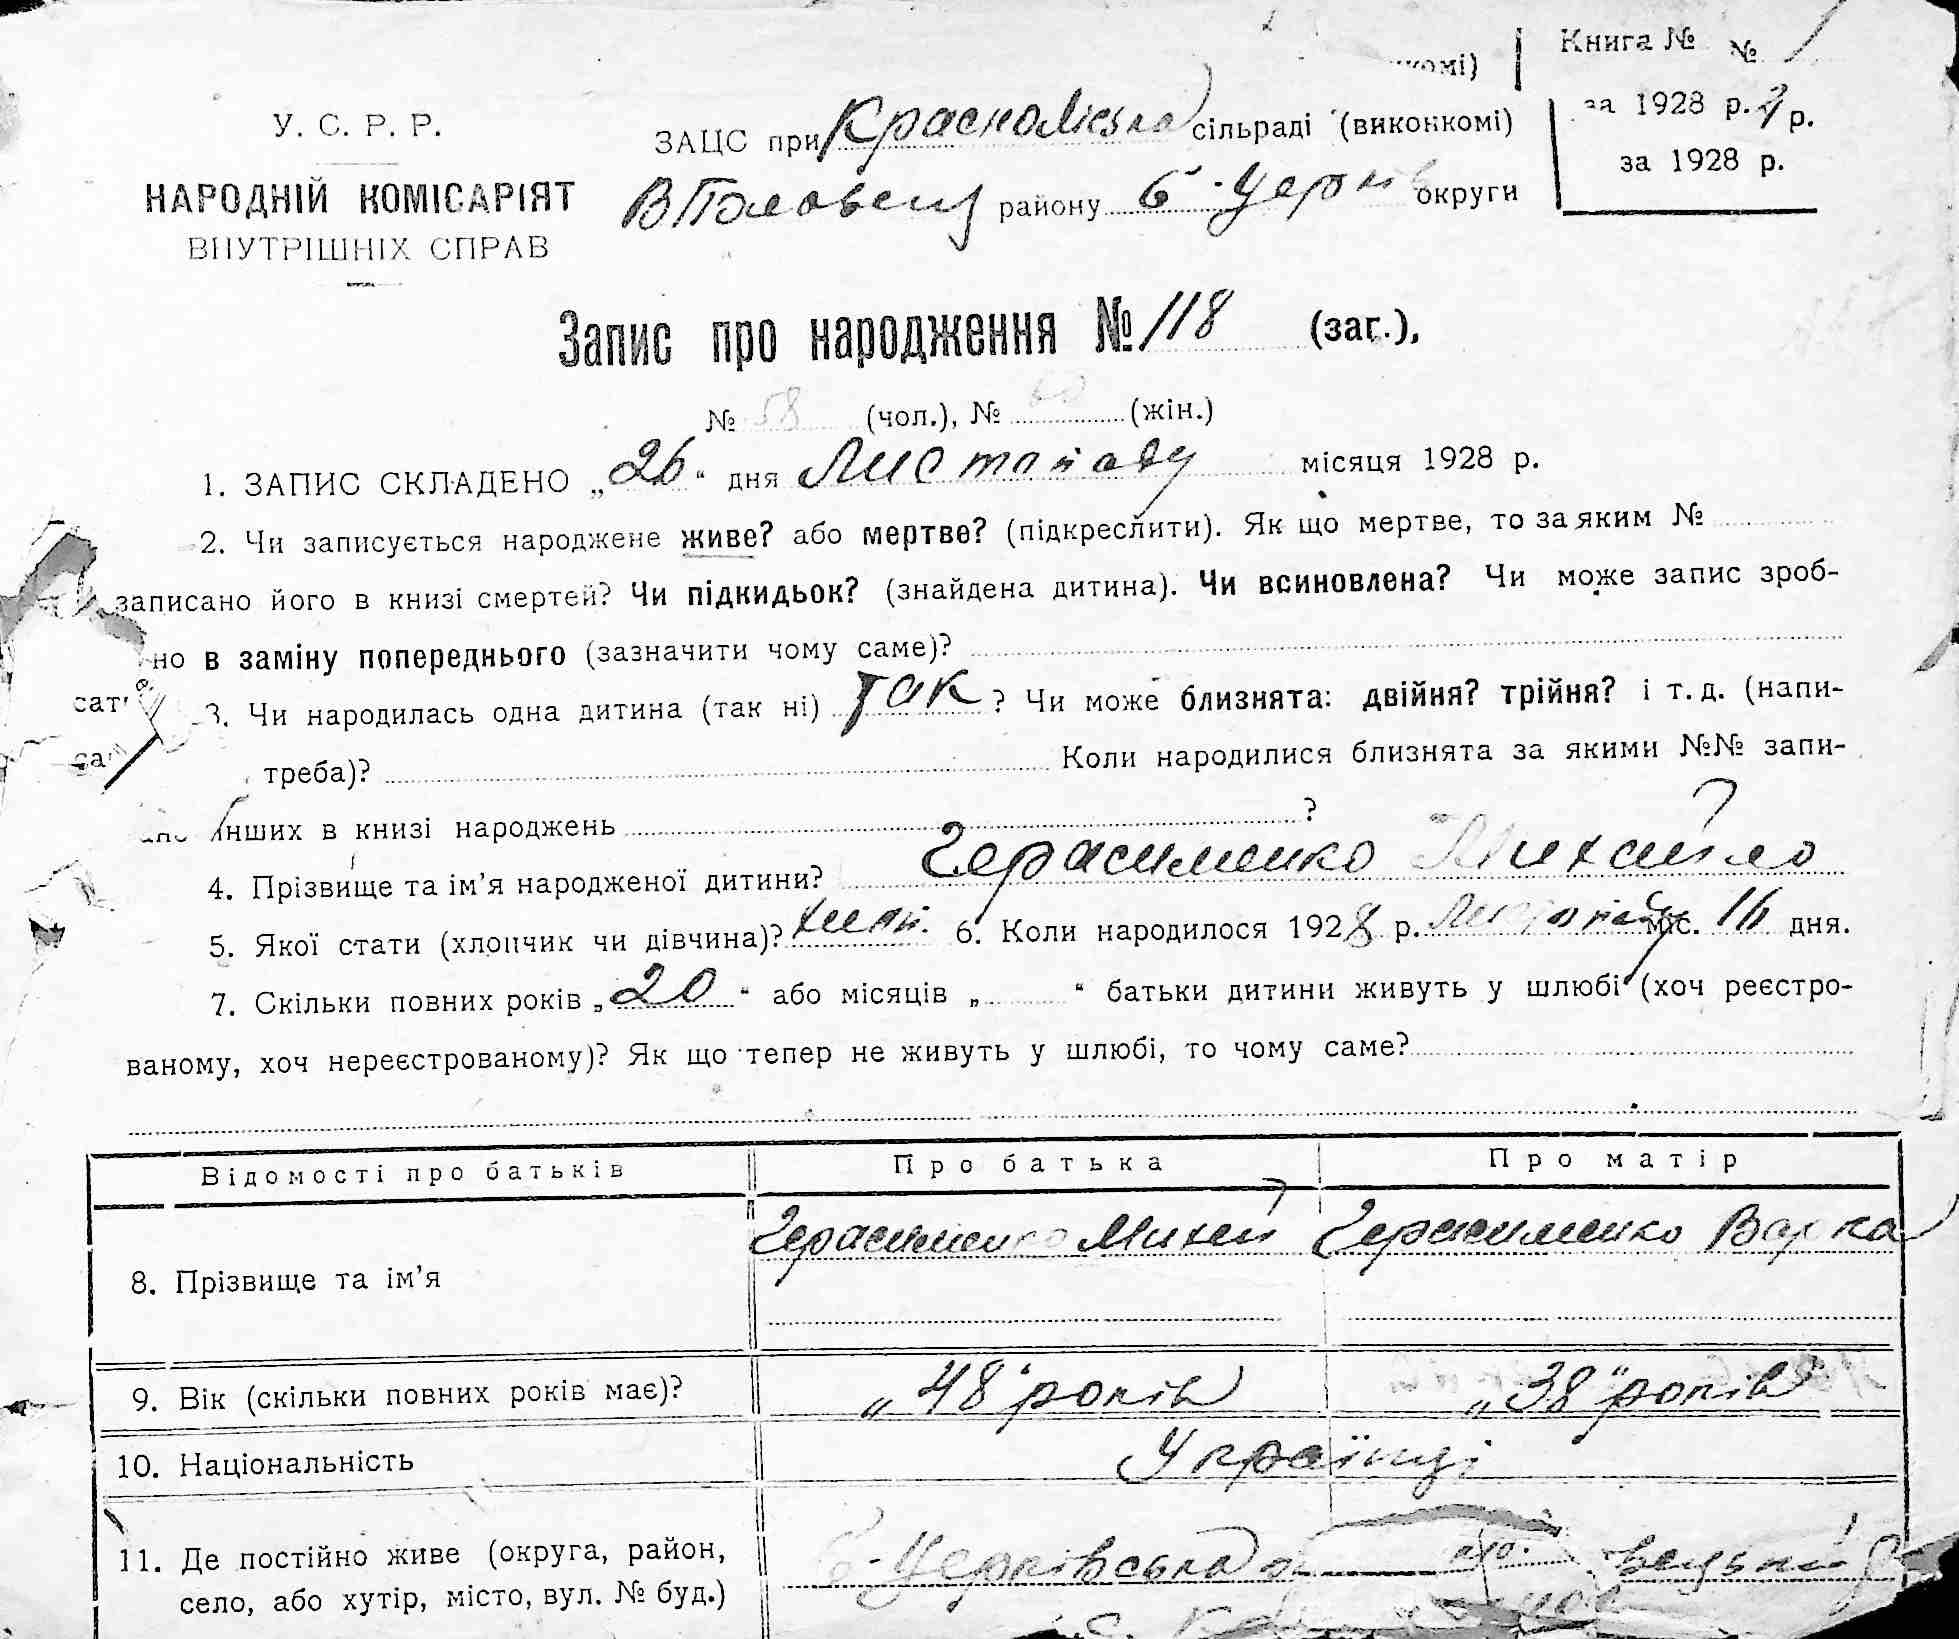 Книга № № 1
У. С. Р. Р.
ЗАЦС при Краснолісько сільраді (виконкомі)
за 1928 р. р.
за 1928 р.
НАРОДНІЙ КОМІСАРІЯТ
В Половецьк району Б-Церків округи
ВНУТРІШНІХ СПРАВ
Запис про народження № 118 (заг.),
№ 58 (чол.), № 60 (жін.)
1. ЗАПИС СКЛАДЕНО „26“ дня Листопаду місяця 1928 р.
2. Чи записується народжене живе? або мертве? (підкреслити). Як що мертве, то за яким №
записано його в книзі смертей? Чи підкидьок? (знайдена дитина). Чи всиновлена? Чи може запис зроб-
но в заміну попереднього (зазначити чому саме)?
3. Чи народилась одна дитина (так ні) Так ? Чи може близнята: двійня? трійня? і т. д. (напи-
треба)? Коли народилися близнята за якими №№ запи-
інших в книзі народжень ?
4. Прізвище та ім’я народженої дитини? Герасименко Михайло
5. Якої стати (хлопчик чи дівчина)? хлоп. 6. Коли народилося 1928 р. Листопаду міс. 16 дня.
7. Скільки повних років „20“ або місяців „ “ батьки дитини живуть у шлюбі (хоч реєстро-
ваному, хоч нереєстрованому)? Як що тепер не живуть у шлюбі, то чому саме?
Відомості про батьків Про батька Про матір
8. Прізвище та ім’я Герасименко Михей Герасименко Варка
9. Вік (скільки повних років має)? „48“ років „38“ років
10. Національність Українці
11. Де постійно живе (округа, район, Б-Церківська
село, або хутір, місто, вул. № буд.) с.